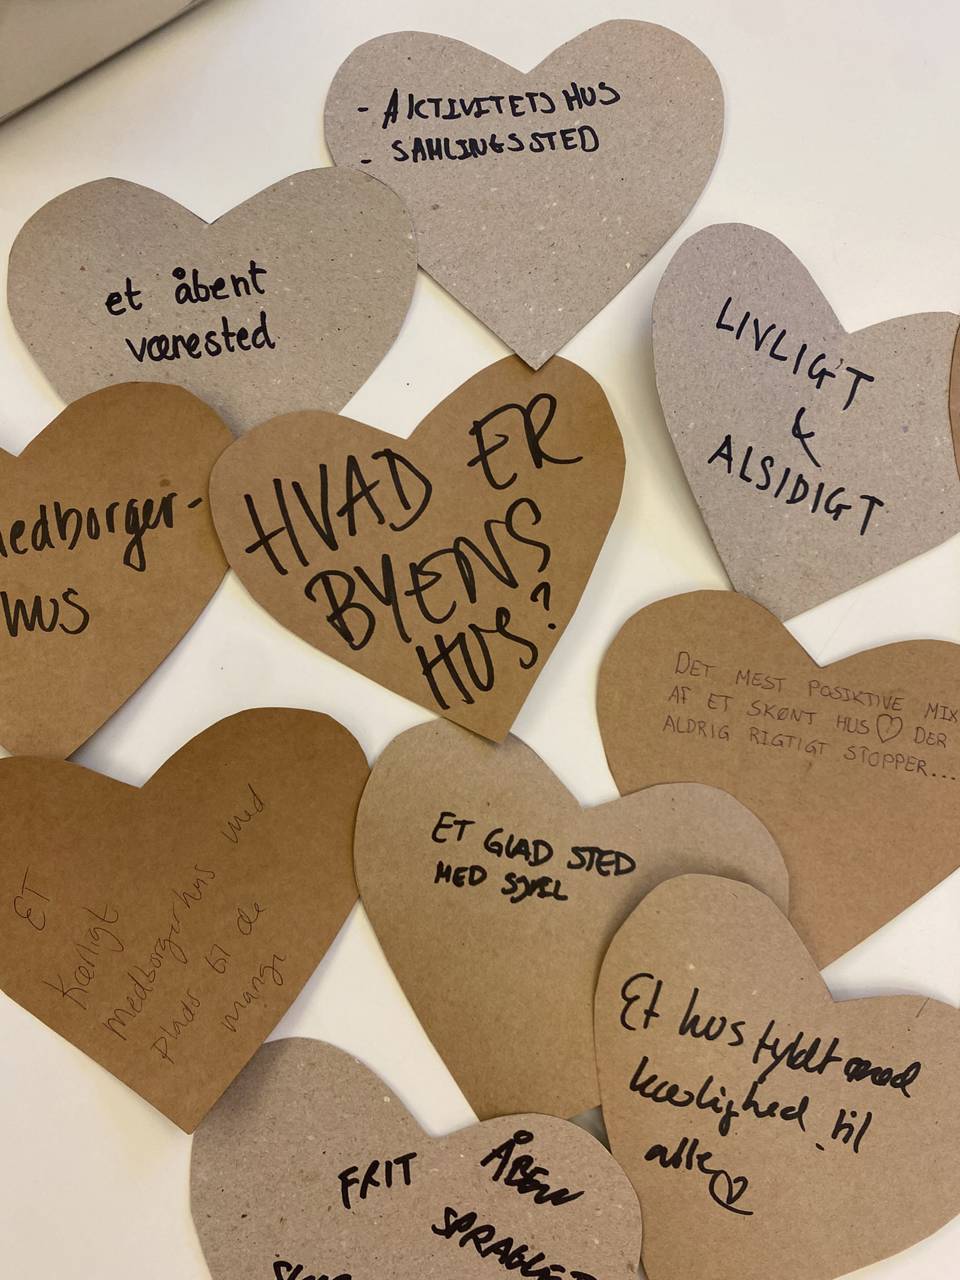 - AKTIVITETSHUS
- SAMLINGSSTED
et åbent
værested
LIVLIGT
&
ALSIDIGT
medborger-
hus
HVAD ER
BYENS
HUS?
DET MEST POSIKTIVE MIX
AF ET SKØNT HUS♡ DER
ALDRIG RIGTIGT STOPPER...
ET GLAD STED
MED SJÆL
ET
Kærligt
medborgerhus med
plads til de
mange
Et hus fyldt med
kærlighed til
alle♡
FRIT ÅBEN